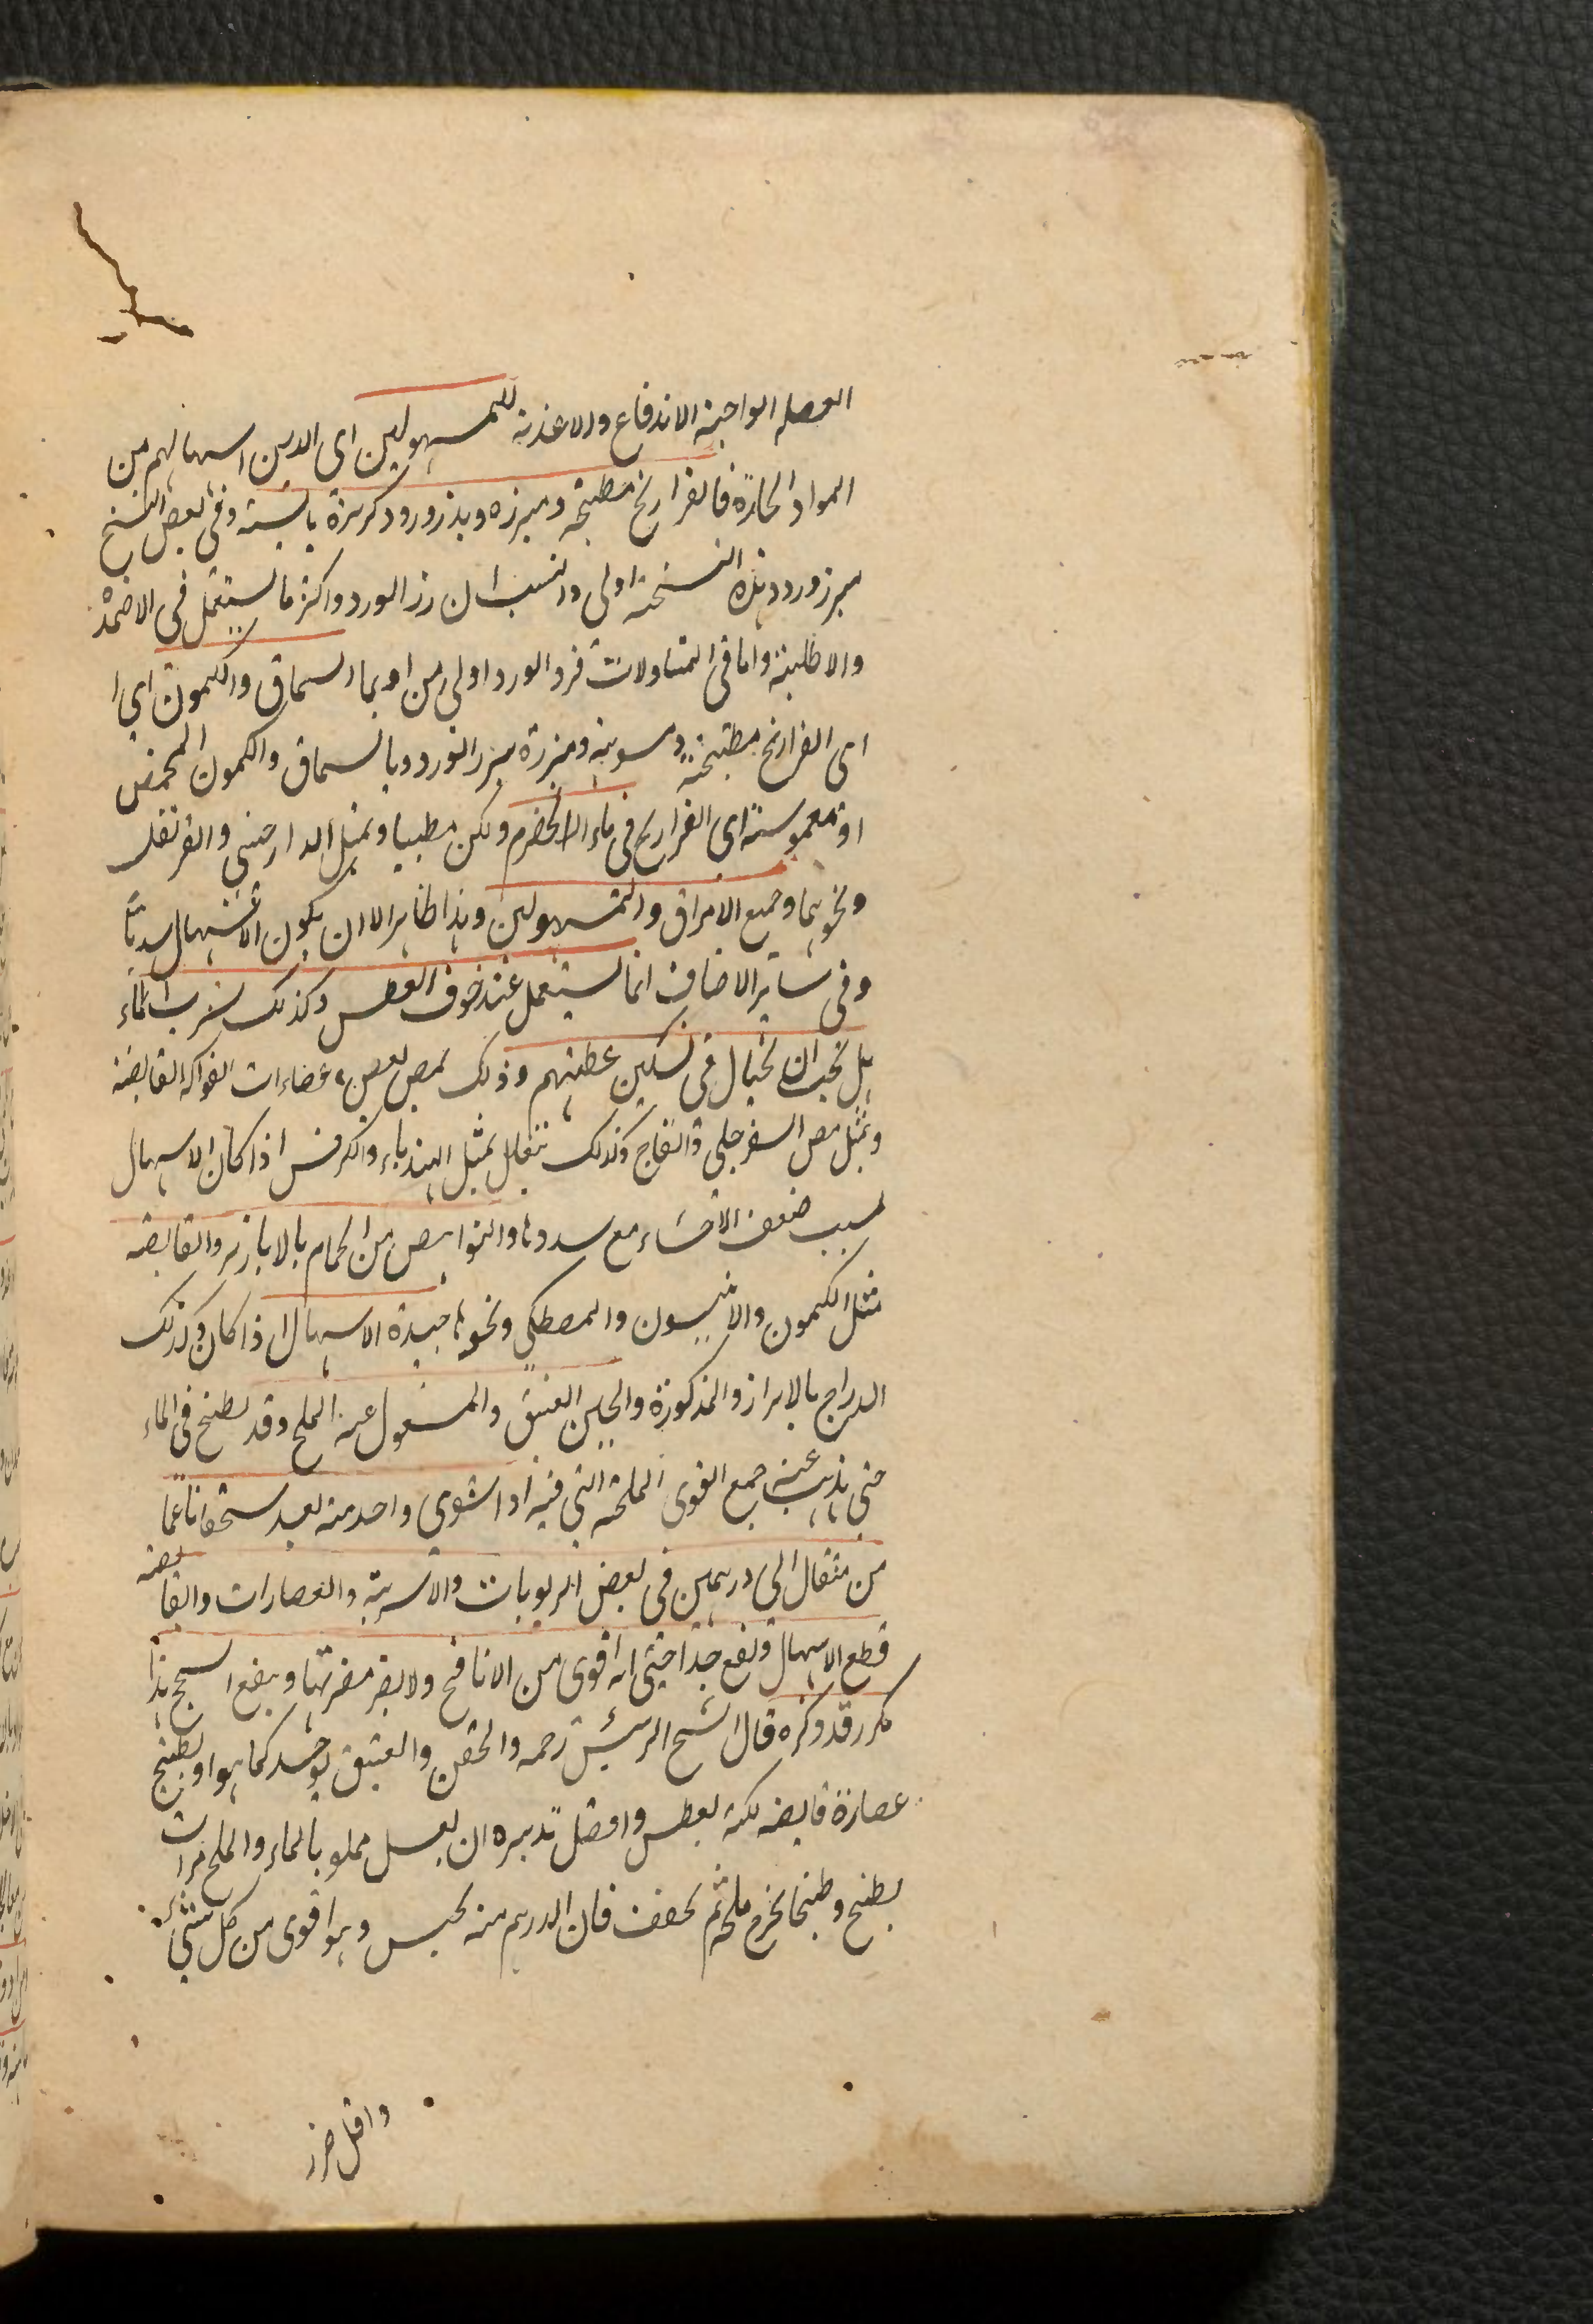 الفضله الواجبة الاندفاع والاغذية للمسهولين اى الذين اسهالهم من
المواد الحارة فالفراريج مطبخه ومبزره وبذرورد وكزبرة يابسة وفى بعض النسخ
ببزر ورد وهذه النسخة اولى وانسب لان زر الورد واكثر ما يستعمل فى الاضمدة
والاطلية واما فى المتناولات فزر الورد اولى من او بماء السماق والكمون اى ا
اى الفراريج مطبخة ومسوية ومبزرة ببزر الورد وبالسماق والكمون المحمض
او مغموسة اى الفراريج فى ماء الحصرم ولكن مطيبا وبمثل الدارچينى والقرنفل
ونحوهما وجميع الامراق والمسهولين وهذا ظاهر الا ان يكون الاسهال سدديا
وفى سائر الاصناف انما يستعمل عند خوف العطش وكذلك شرب الماء
بل يجب ان يحتال فى تسكين عطشهم وذلك بمص بعض عصارات الفواكه القابضة
وبمثل مص السفرجل والتفاح وكذلك تنقل بمثل الهندباء والكرفس اذا كان الاسهال
لسبب ضعف الاحشاء مع سددها والنواهض من الحمام بالابازير والقابضه
مثل الكمون والانيسون والمصطكى ونحوها جيدة الاسهال اذا كان وكذلك
الدراج بالابرازو المذكورة والجبن العتيق والمغسول عنه الملح وقد يطبخ فى الماء
حتى يذهب عنه جميع القوى الملحة التى فيه اذا شوى واحد منه بعد سحقه ناعما
من مثقال الى درهمين فى بعض الربوبات والاشربة والعصارات والقابضه
قطع الاسهال ونفع جدا حتى انه اقوى من الانافح ولا يضر مضرتها وينفع السحج هذا
مكرر قد ذكره قال الشيخ الرئيس رحمه والحقن والعتيق يوخذ كما هو او يطبخ
عصارة قابضه لكنه يعطش وافضل تدبيره ان يغسل مملو بالماء والملح مرات
يطبخ وطبخا يخرج ملحه ثم يجفف فان الدرهم منه يحبس وهو اقوى من كل شئ
واقل ضرر